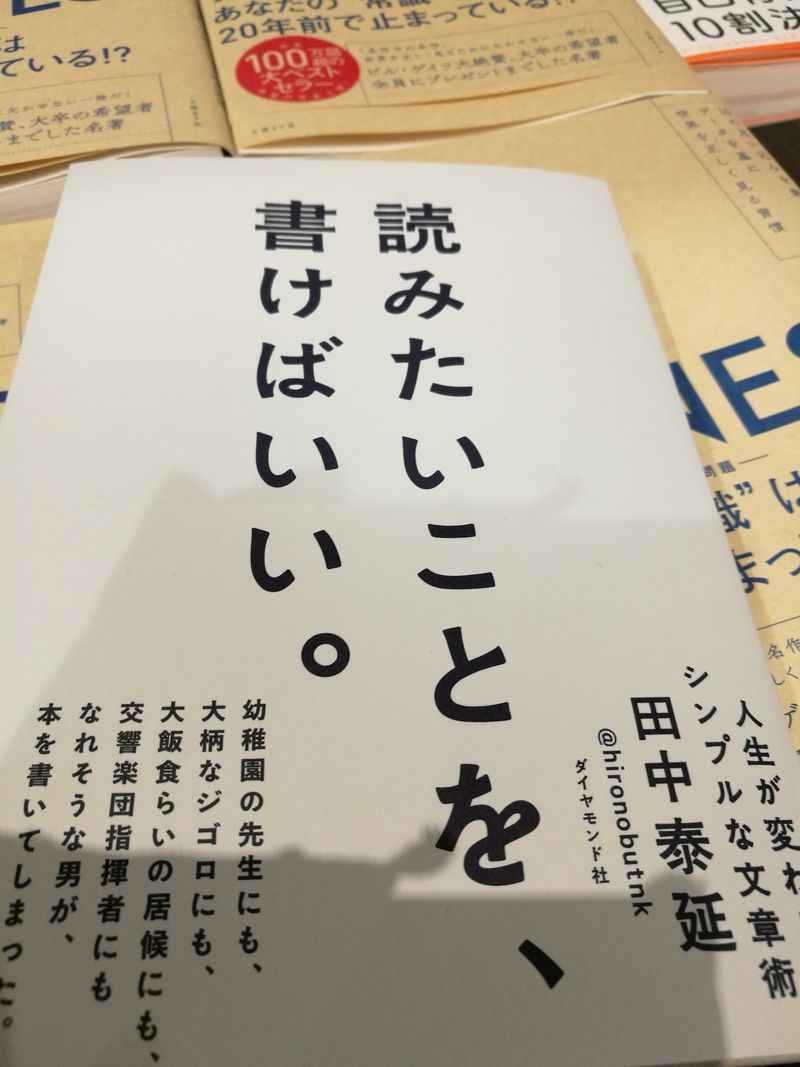 読みたいことを、
書けばいい。
人生が変わ
シンプルな文章術
田中泰延
@hironobutnk
ダイヤモンド社
幼稚園の先生にも、
大柄なジゴロにも、
大飯食らいの居候にも、
交響楽団指揮者にも
なれそうな男が、
本を書いてしまった。
あなたの“常識”
20年前で止まっている!?
100万部
超の
大ベスト
セラー
ビル・ゲイツ大絶賛、大卒の希望者
全員にプレゼントまでした名著
ES
は
ている!?
大卒の希望者
までした名著
10割法
世界を正しく見る習慣
NES
問題
識”は
まつ
名作
しく